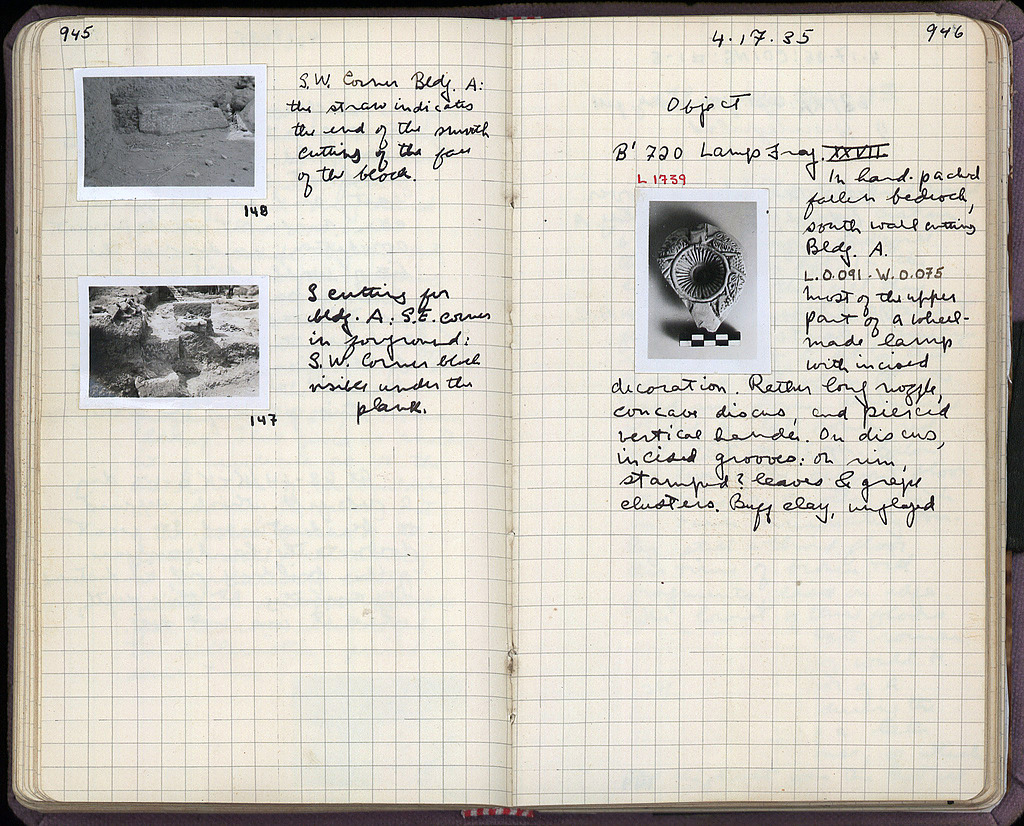 945
S.W. Corner Bldg. A:
the straw indicates
the end of the smooth
cutting of the face
of the block.
148
S cutting for
bldg. A; S.E. corner
in foreground:
S.W. Corner block
visible under the
plank.
147
946
4.17.35
Object
B' 720 Lamp Frag. XXVII
L 1739
In hard-packed
fallen bedrock,
south wall cutting
Bldg. A.
L.0.091 - W.0.075
Most of the upper
part of a wheel-
made lamp
with incised
decoration. Rather long nozzle,
concave discus, and pierced
vertical handle. On discus,
incised grooves: on rim,
stamped? leaves & grape
clusters. Buff clay, unglazed